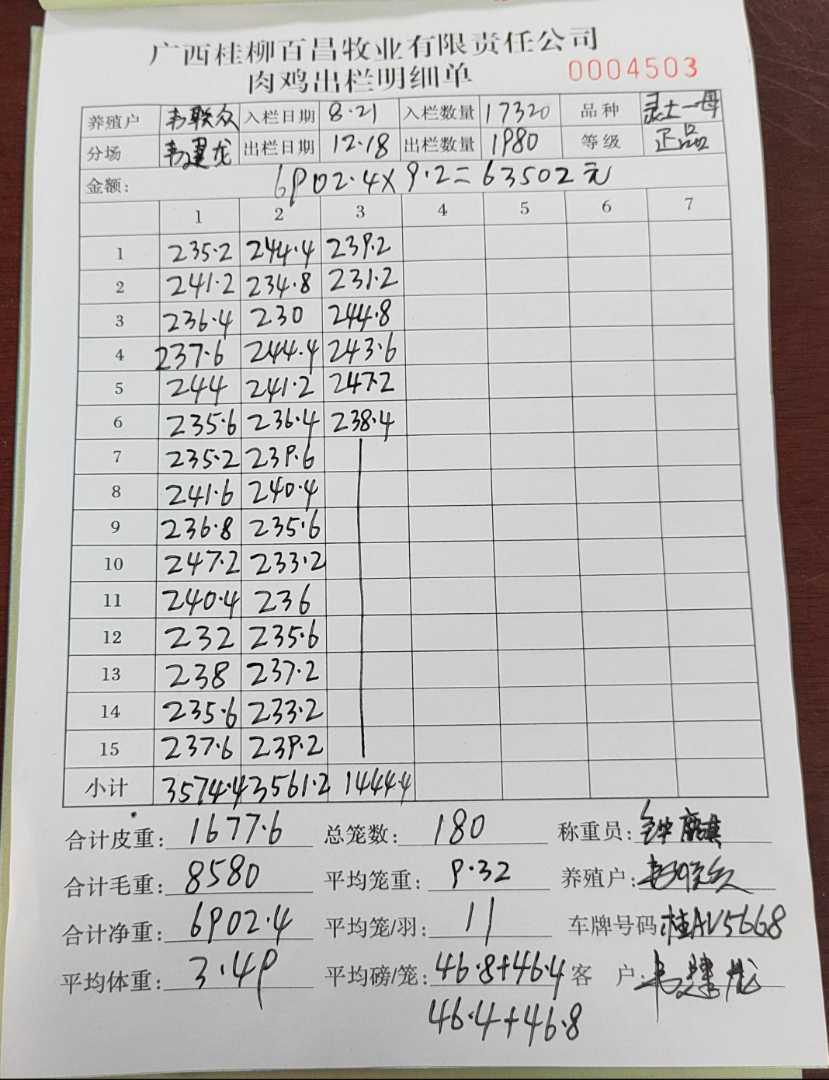 广西桂柳百昌牧业有限责任公司
肉鸡出栏明细单 0004503
养殖户 韦联众 入栏日期 8·21 入栏数量 17320 品种 灵土一母
分场 韦翼龙 出栏日期 12·18 出栏数量 1980 等级 正品
金额: 6902.4×9.2=63502元
1 2 3 4 5 6 7
1 235·2 244·4 239·2
2 241·2 234·8 231·2
3 236·4 230 244·8
4 237·6 244·4 243·6
5 244 241·2 247·2
6 235·6 236·4 238·4
7 235·2 239·6
8 241·6 240·4
9 236·8 235·6
10 247·2 233·2
11 240·4 236
12 232 235·6
13 238 237·2
14 235·6 233·2
15 237·6 239·2
小计 3574·4 3561·2 1444·4
合计皮重: 1677·6 总笼数: 180 称重员: 钟
合计毛重: 8580 平均笼重: 9·32 养殖户:
合计净重: 6902·4 平均笼/羽: 11 车牌号码: 桂AV5668
平均体重: 3·49 平均磅/笼: 46·8+46·4 客 户: 韦
46·4+46·8